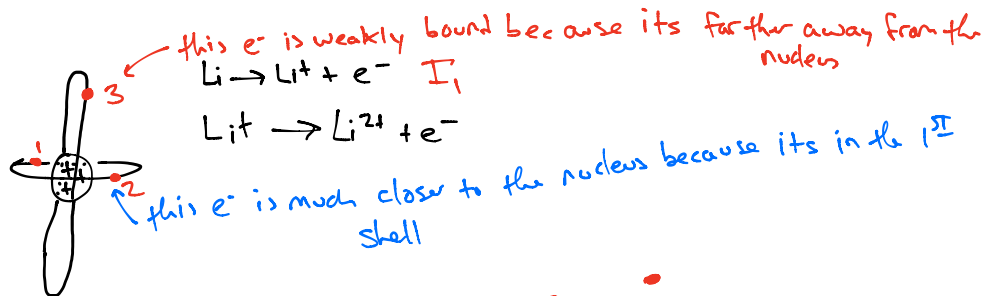 this e⁻ is weakly bound because its farther away from the
nucleus
Li → Li⁺ + e⁻ I₁
3
Li⁺ → Li²⁺ + e⁻
1
2
this e⁻ is much closer to the nucleus because its in the 1ST
shell